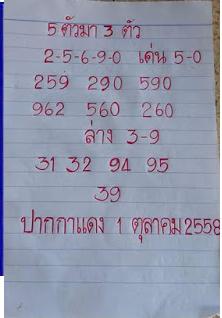 5 ตัวมา 3 ตัว
2-5-6-9-0 เด่น 5-0
259 290 590
962 560 260
ล่าง 3-9
31 32 94 95
39
ปากกาแดง 1 ตุลาคม 2558